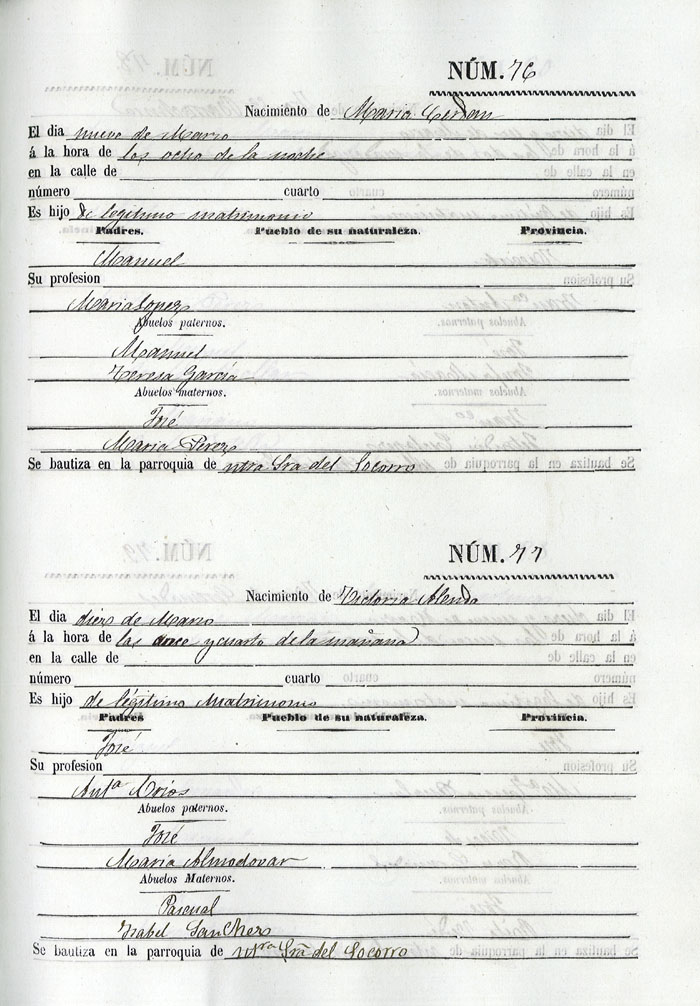 NÚM. 76
Nacimiento de Maria Cerdan
El dia nueve de Marzo
á la hora de las ocho de la noche
en la calle de
número cuarto
Es hijo de legitimo matrimonio
Padres. Pueblo de su naturaleza. Provincia.
Manuel
Su profesion
Maria Lopez
Abuelos paternos.
Manuel
Teresa Garcia
Abuelos maternos.
José
Maria Perez
Se bautiza en la parroquia de ntra Sra del Socorro
NÚM. 77
Nacimiento de Victoria Alenda
El dia diez de Marzo
á la hora de las once y cuarto de la mañana
en la calle de
número cuarto
Es hijo de légitimo Matrimonio
Padres Pueblo de su naturaleza. Provincia.
José
Su profesion
Antª
Abuelos paternos.
José
Maria Almodovar
Abuelos Maternos.
Pascual
Isabel Sanchez
Se bautiza en la parroquia de ntra Sra del Socorro